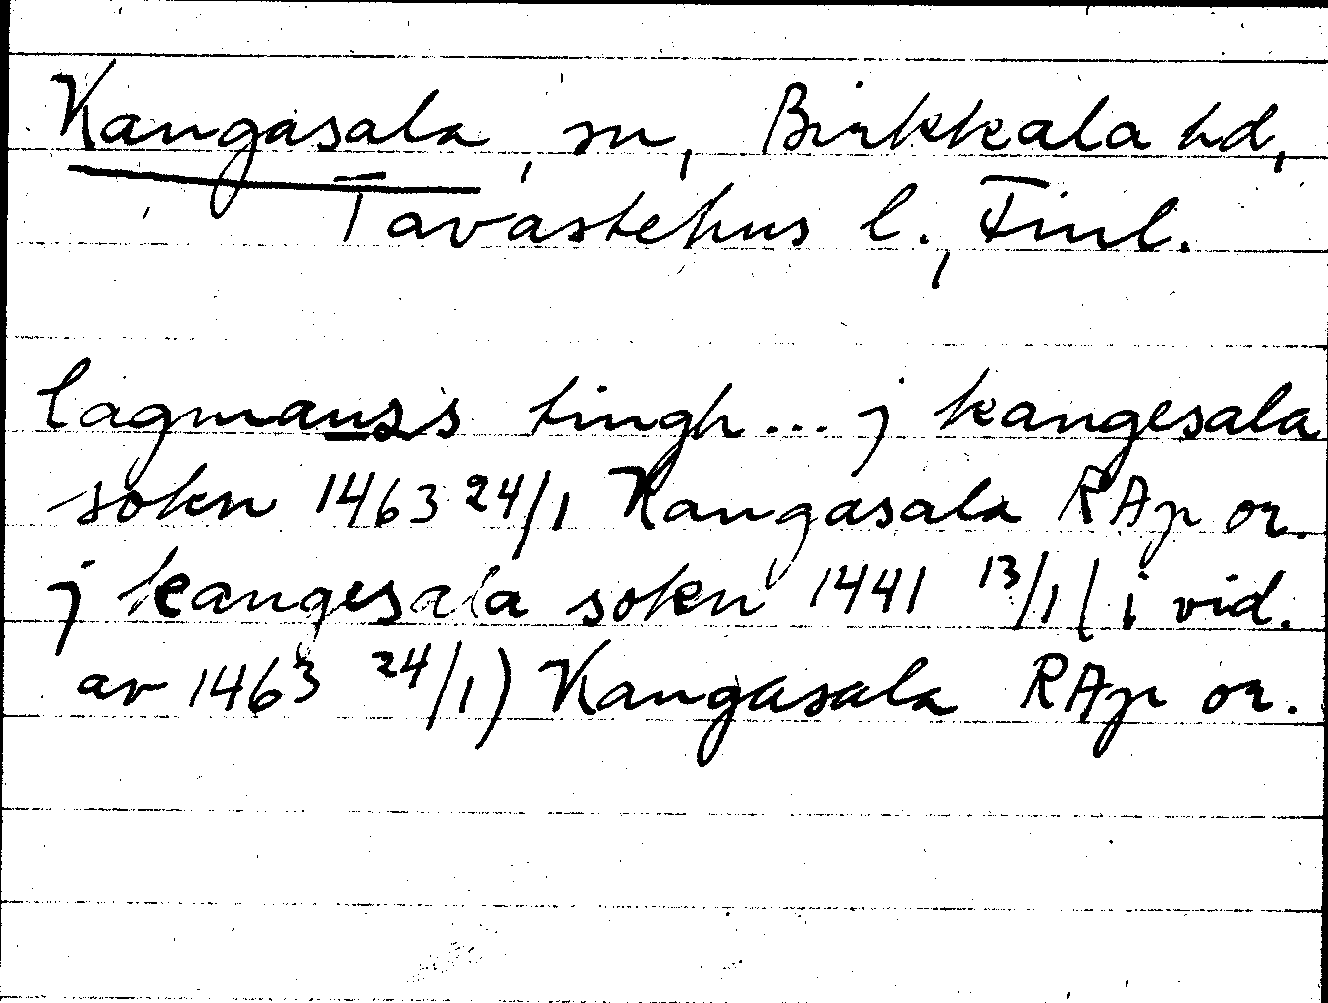 Kangasala, sn, Birkkala hd,
Tavastehus l., Finl.
lagmanss tingh... j kangesala
sokn 1463 24/1 Kangasala RAp or.
j kangesala sokn 1441 13/1 (i vid.
av 1463 24/1) Kangasala RAp or.